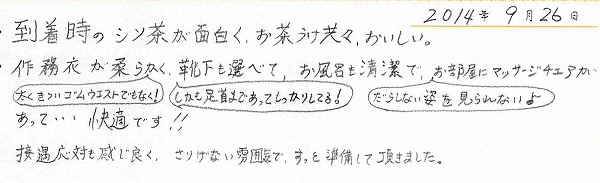 2014年 9月26日
・到着時のシソ茶が面白く、お茶うけ共々、おいしい。
・作務衣が柔らかく、靴下も選べて、お風呂も清潔で、お部屋にマッサージチェアがい
太くきついゴムウエストでもなく! しかも足首まであってしっかりしてる! だらしない姿を見られないよ
あって・・・快適です!!
接遇応対も感じ良く、さりげない雰囲気で、すっと準備して頂きました。